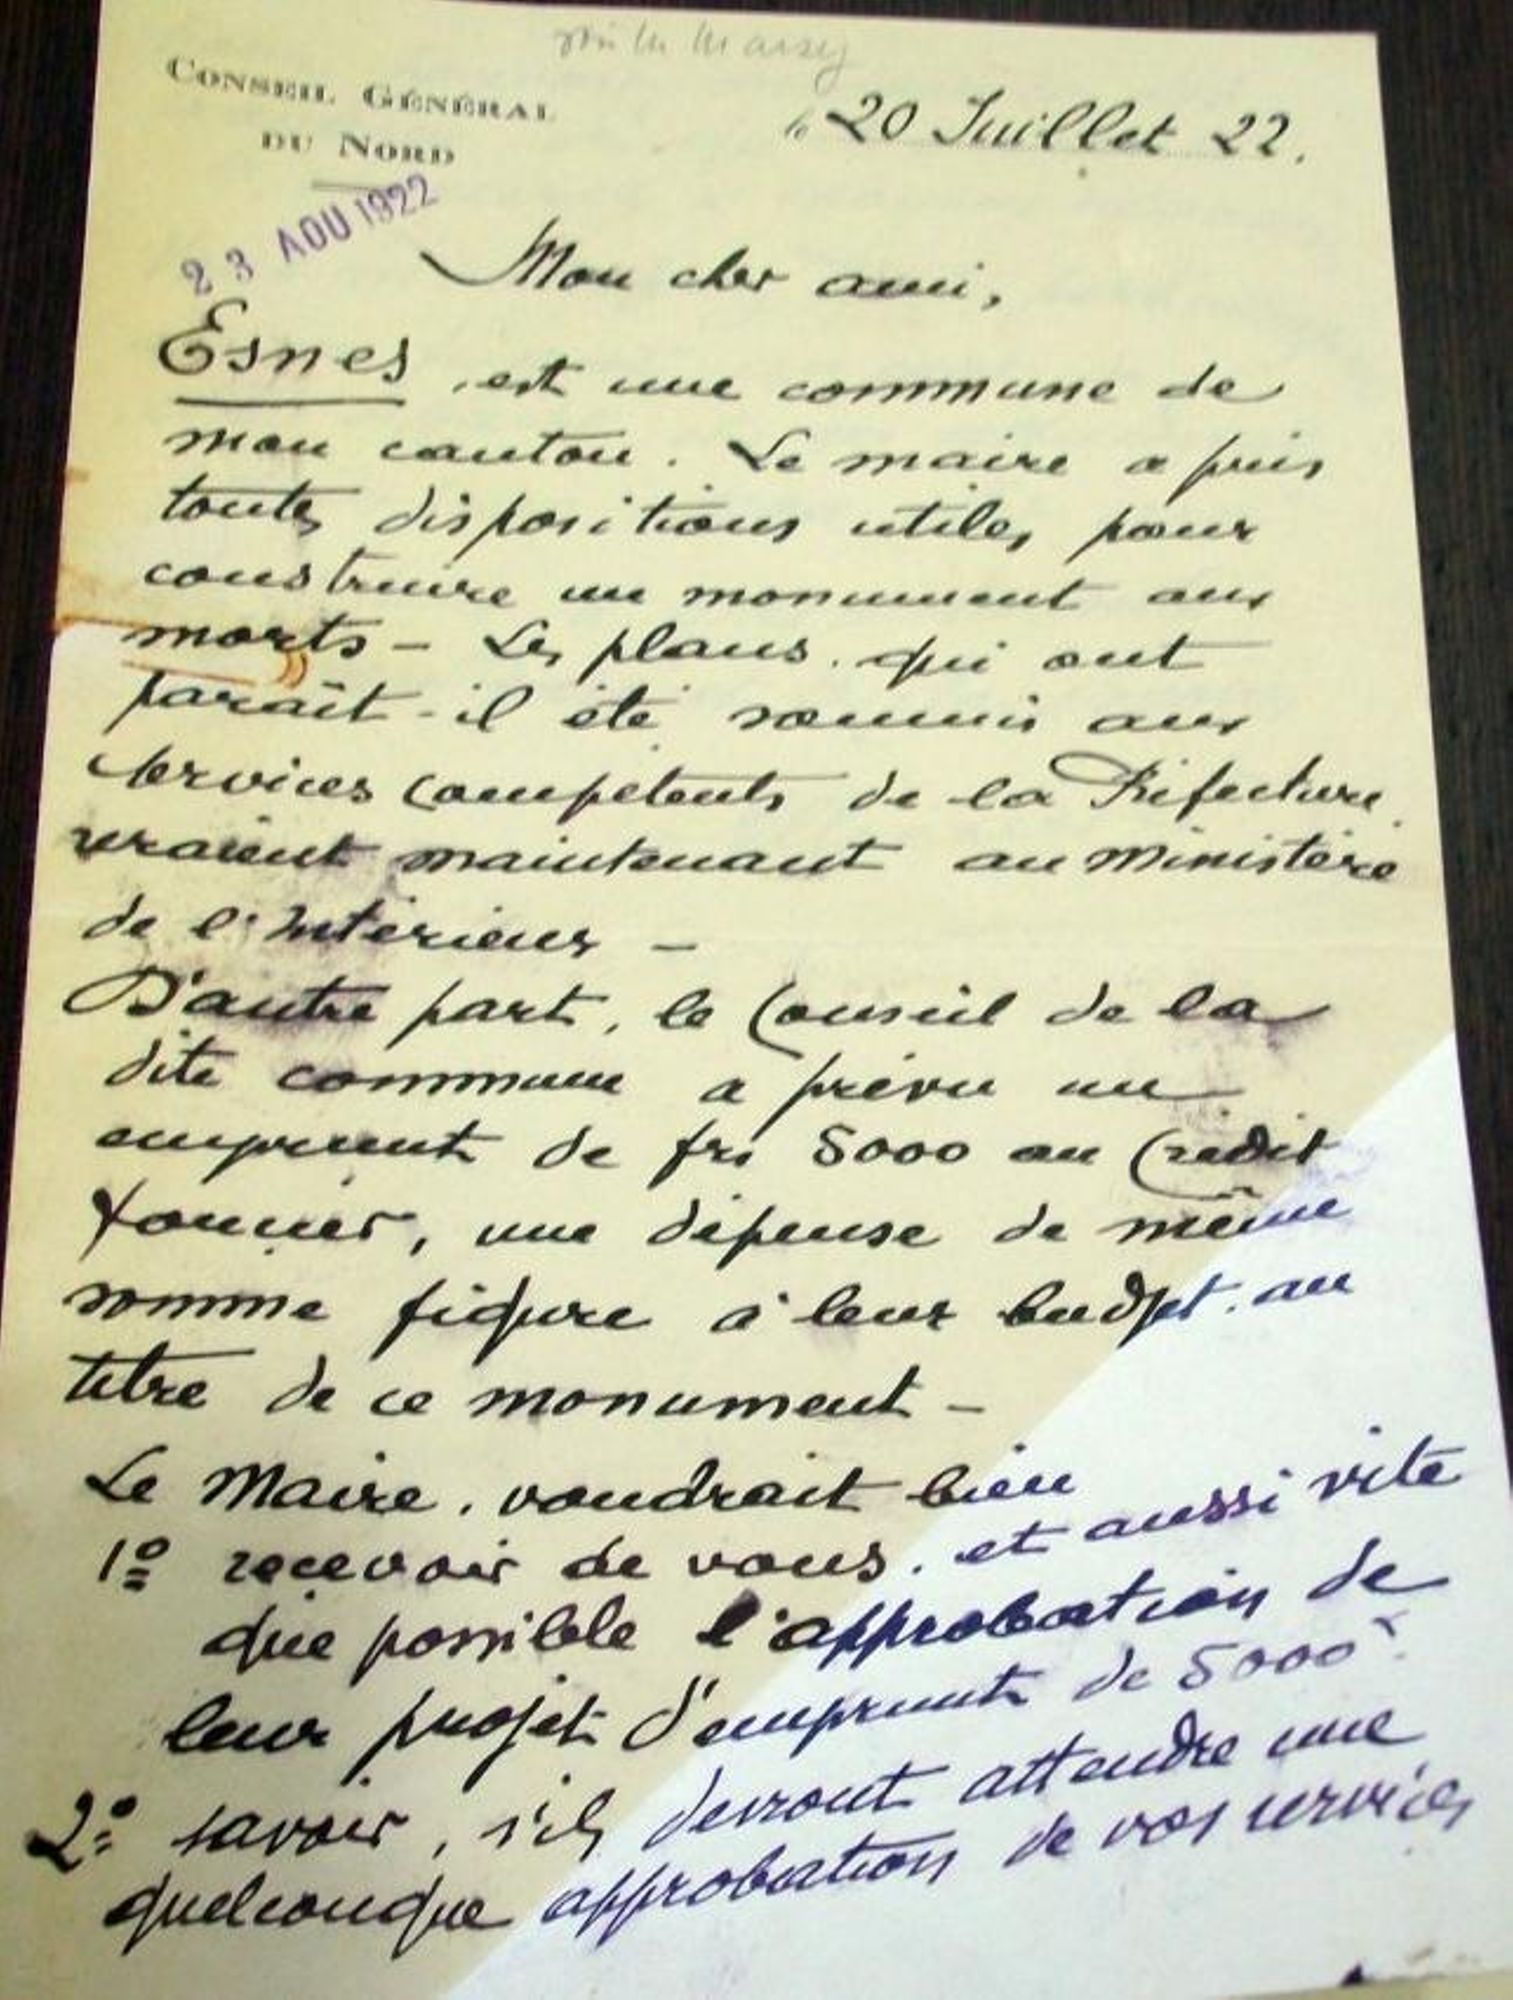 CONSEIL GÉNÉRAL
DU NORD
le 20 Juillet 22.
23 AOU 1922
Mon cher ami,
Esnes, est une commune de
mon canton. Le maire a pris
toutes dispositions utiles pour
construire un monument aux
morts – Les plans, qui ont
paraît-il été soumis aux
services compétents de la Préfecture,
seraient maintenant au Ministère
de l'Intérieur –
D'autre part, le Conseil de la
dite commune a prévu un
emprunt de frs 5000 au Crédit
foncier, une dépense de même
somme figure à leur budget, au
titre de ce monument –
Le Maire, voudrait bien
1º recevoir de vous, et aussi vite
que possible l'approbation de
leur projet d'emprunt de 5000 f.
2º savoir, s'ils devront attendre une
quelconque approbation de vos services